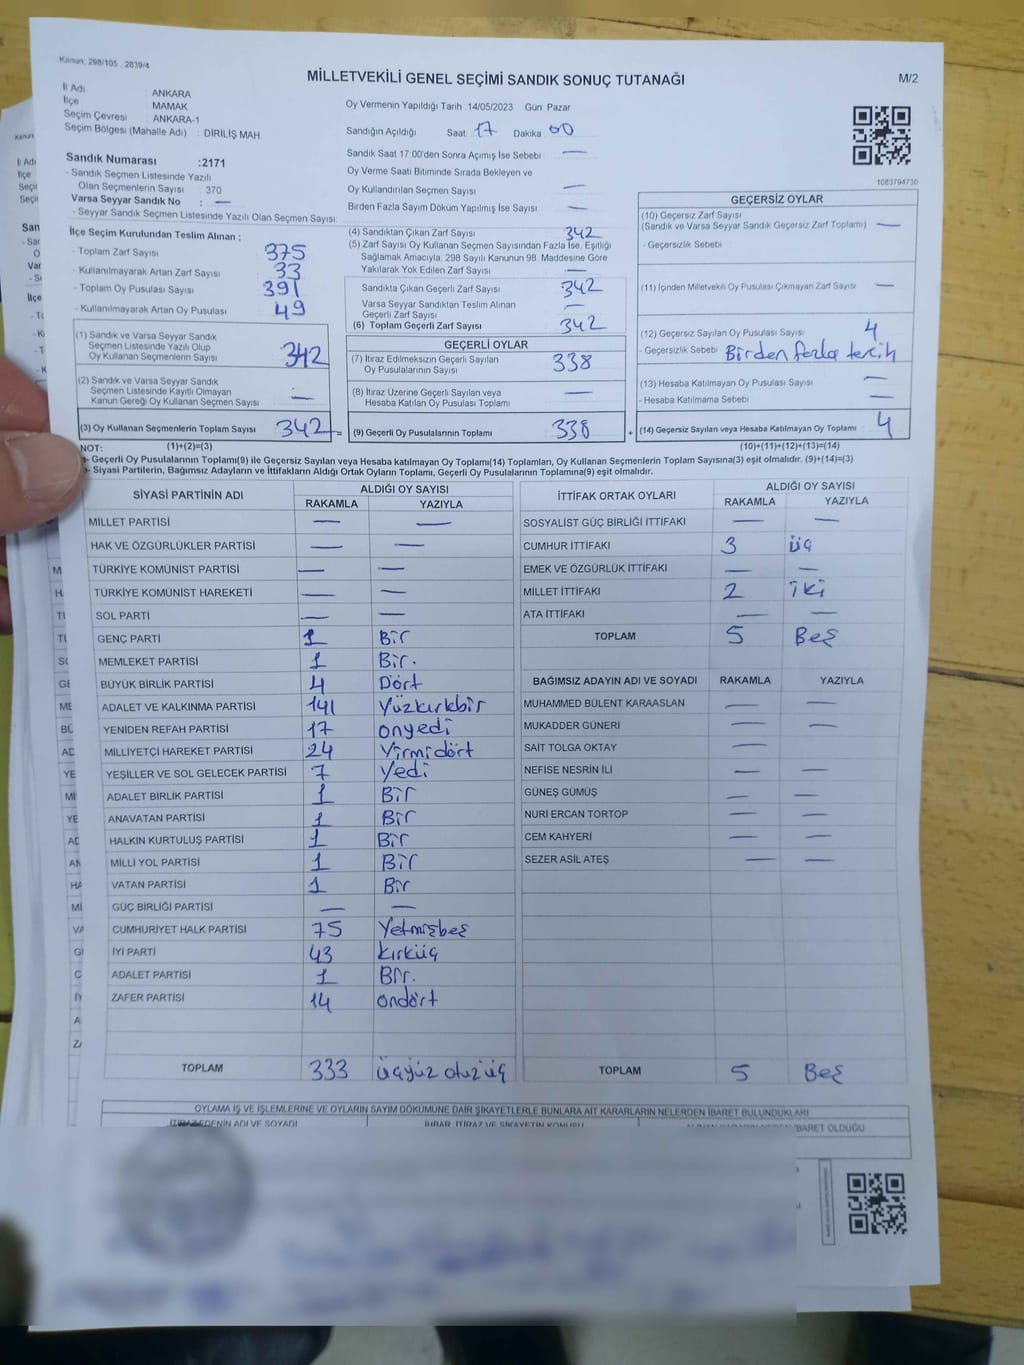 Kanun, 298/105 , 2839/4
MİLLETVEKİLİ GENEL SEÇİMİ SANDIK SONUÇ TUTANAĞI
M/2
İl Adı : ANKARA
İlçe : MAMAK
Seçim Çevresi : ANKARA-1
Seçim Bölgesi (Mahalle Adı) : DİRİLİŞ MAH.
Sandık Numarası :2171
- Sandık Seçmen Listesinde Yazılı
Olan Seçmenlerin Sayısı : 370
Varsa Seyyar Sandık No : —
- Seyyar Sandık Seçmen Listesinde Yazılı Olan Seçmen Sayısı:
Oy Vermenin Yapıldığı Tarih :14/05/2023 Gün: Pazar
Sandığın Açıldığı Saat 17 Dakika 00
Sandık Saat 17:00'den Sonra Açımış İse Sebebi —
Oy Verme Saati Bitiminde Sırada Bekleyen ve
Oy Kullandırılan Seçmen Sayısı —
Birden Fazla Sayım Döküm Yapılmış İse Sayısı —
1083794730
İlçe Seçim Kurulundan Teslim Alınan :
- Toplam Zarf Sayısı 375
- Kullanılmayarak Artan Zarf Sayısı 33
- Toplam Oy Pusulası Sayısı 391
- Kullanılmayarak Artan Oy Pusulası 49
(1) Sandık ve Varsa Seyyar Sandık
Seçmen Listesinde Yazılı Olup
Oy Kullanan Seçmenlerin Sayısı 342
(2) Sandık ve Varsa Seyyar Sandık
Seçmen Listesinde Kayıtlı Olmayan
Kanun Gereği Oy Kullanan Seçmen Sayısı —
(3) Oy Kullanan Seçmenlerin Toplam Sayısı 342 =
(1)+(2)=(3)
(4) Sandıktan Çıkan Zarf Sayısı 342
(5) Zarf Sayısı Oy Kullanan Seçmen Sayısından Fazla İse, Eşitliği
Sağlamak Amacıyla, 298 Sayılı Kanunun 98. Maddesine Göre
Yakılarak Yok Edilen Zarf Sayısı —
Sandıkta Çıkan Geçerli Zarf Sayısı 342
Varsa Seyyar Sandıktan Teslim Alınan
Geçerli Zarf Sayısı —
(6) Toplam Geçerli Zarf Sayısı 342
GEÇERLİ OYLAR
(7) İtiraz Edilmeksizin Geçerli Sayılan
Oy Pusulalarının Sayısı 338
(8) İtiraz Üzerine Geçerli Sayılan veya
Hesaba Katılan Oy Pusulası Toplamı —
(9) Geçerli Oy Pusulalarının Toplamı 338 +
GEÇERSİZ OYLAR
(10) Geçersiz Zarf Sayısı
(Sandık ve Varsa Seyyar Sandık Geçersiz Zarf Toplamı) —
- Geçersizlik Sebebi
(11) İçinden Milletvekili Oy Pusulası Çıkmayan Zarf Sayısı —
(12) Geçersiz Sayılan Oy Pusulası Sayısı 4
- Geçersizlik Sebebi Birden fazla tercih
(13) Hesaba Katılmayan Oy Pusulası Sayısı —
- Hesaba Katılmama Sebebi —
(14) Geçersiz Sayılan veya Hesaba Katılmayan Oy Toplamı 4
(10)+(11)+(12)+(13)=(14)
NOT:
- Geçerli Oy Pusulalarının Toplamı(9) ile Geçersiz Sayılan veya Hesaba katılmayan Oy Toplamı(14) Toplamları, Oy Kullanan Seçmenlerin Toplam Sayısına(3) eşit olmalıdır. (9)+(14)=(3)
- Siyasi Partilerin, Bağımsız Adayların ve İttifakların Aldığı Ortak Oyların Toplamı, Geçerli Oy Pusulalarının Toplamına(9) eşit olmalıdır.
SİYASİ PARTİNİN ADI ALDIĞI OY SAYISI
RAKAMLA YAZIYLA
MİLLET PARTİSİ — —
HAK VE ÖZGÜRLÜKLER PARTİSİ — —
TÜRKİYE KOMÜNİST PARTİSİ — —
TÜRKİYE KOMÜNİST HAREKETİ — —
SOL PARTİ — —
GENÇ PARTİ 1 Bir
MEMLEKET PARTİSİ 1 Bir.
BÜYÜK BİRLİK PARTİSİ 4 Dört
ADALET VE KALKINMA PARTİSİ 141 Yüzkırkbir
YENİDEN REFAH PARTİSİ 17 onyedi
MİLLİYETÇİ HAREKET PARTİSİ 24 Yirmidört
YEŞİLLER VE SOL GELECEK PARTİSİ 7 Yedi
ADALET BİRLİK PARTİSİ 1 Bir
ANAVATAN PARTİSİ 1 Bir
HALKIN KURTULUŞ PARTİSİ 1 Bir
MİLLİ YOL PARTİSİ 1 Bir
VATAN PARTİSİ 1 Bir
GÜÇ BİRLİĞİ PARTİSİ — —
CUMHURİYET HALK PARTİSİ 75 Yetmişbeş
İYİ PARTİ 43 kırküç
ADALET PARTİSİ 1 Bir.
ZAFER PARTİSİ 14 ondört
TOPLAM 333 üçyüz otuz üç
İTTİFAK ORTAK OYLARI ALDIĞI OY SAYISI
RAKAMLA YAZIYLA
SOSYALİST GÜÇ BİRLİĞİ İTTİFAKI — —
CUMHUR İTTİFAKI 3 üç
EMEK VE ÖZGÜRLÜK İTTİFAKI — —
MİLLET İTTİFAKI 2 iki
ATA İTTİFAKI — —
TOPLAM 5 Beş
BAĞIMSIZ ADAYIN ADI VE SOYADI RAKAMLA YAZIYLA
MUHAMMED BÜLENT KARAASLAN — —
MUKADDER GÜNERİ — —
SAİT TOLGA OKTAY —
NEFİSE NESRİN İLİ — —
GÜNEŞ GÜMÜŞ — —
NURİ ERCAN TORTOP — —
CEM KAHYERİ — —
SEZER ASİL ATEŞ — —
TOPLAM 5 Beş
OYLAMA İŞ VE İŞLEMLERİNE VE OYLARIN SAYIM DÖKÜMÜNE DAİR ŞİKAYETLERLE BUNLARA AİT KARARLARIN NELERDEN İBARET BULUNDUKLARI
İTİRAZ EDENİN ADI VE SOYADI İHBAR, İTİRAZ VE ŞİKAYETİN KONUSU İBARET OLDUĞU